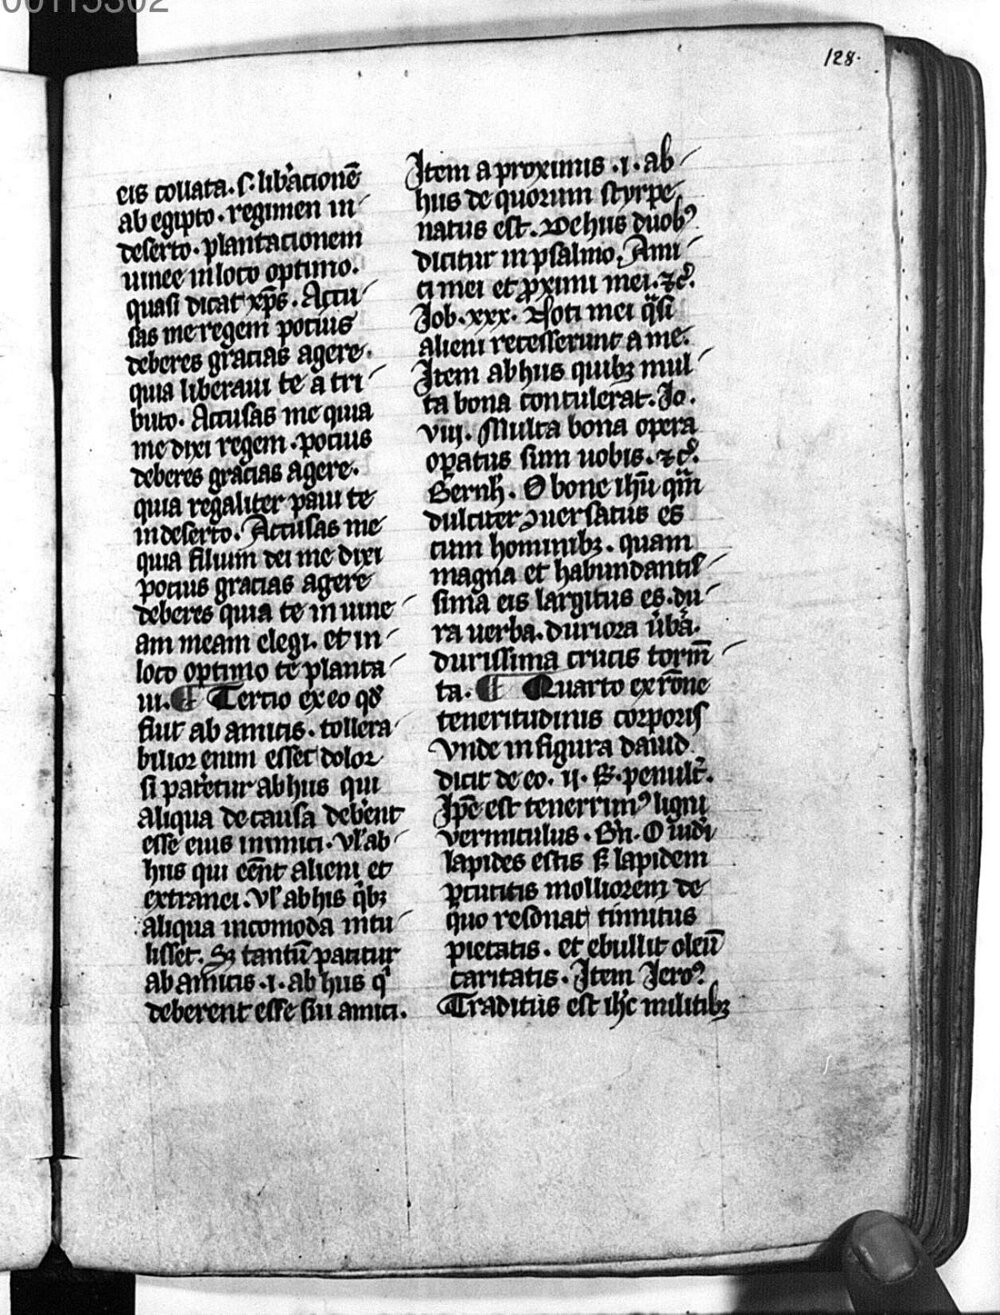 00115302
128.
eis collata. s. lib͛acionē
ab egipto. regimen in
deserto. plantacionem
uinee in loco optimo.
quasi dicat xp̄s. Accu
sas me regem pocius
deberes gracias agere.
quia liberaui te a tri
buto. Accusas me quia
me dixi regem. pocius
deberes gracias agere.
quia regaliter paui te
in deserto. Accusas me
quia filium dei me dixi
pocius gracias agere
deberes quia te in uine
am meam elegi. et in
loco optimo te planta
ui. ¶ Tercio ex eo qđ
fiut ab amicis. tollera
bilior enim esset dolor
si pateret͛ ab hiis qui
aliqua de causa deb͛ent
esse eius inimici. Vl͛ ab
hiis qui eēnt alieni et
extranei. Vl͛ ab his qͥbꝫ
aliqua incomoda intu
lisset. Sꝫ tantū patitur
ab amicis .i. ab hiis qͥ
deberent esse sui amici.
Item a proximis .i. ab
hiis de quorum styrpe
natus est. De hiis duobꝰ
dicitur in psalmo. Ami
ci mei et ꝓximi mei. ⁊c̄.
Job. xxx. Noti mei qͣsi
alieni recesserunt a me.
Item ab hiis quibꝫ mul
ta bona contulerat. Jo.
viij. Multa bona opera
oꝑatus sum uobis. ⁊c̄.
Bernh̄. O bone ihū qͣm
dulciter ꝯuersatus es
cum hominibꝫ. quam
magna et habundantis
sima eis largitus es. du
ra uerba. duriora u͛b͛a.
durissima crucis torm̄
ta. ¶ Quarto ex rōne
teneritudinis corporis
Vnde in figura dauid
dicit de eo. ii. R̄. penult͛.
Ip̄e est tenerrimꝰ ligni
vermiculus. Bn̄. O iudi
lapides estis sꝫ lapidem
ꝑcutitis molliorem de
quo resonat tinnitus
pietatis. et ebullit oleū
caritatis. Item Jeroꝰ
Traditus est ih̄c militibꝫ